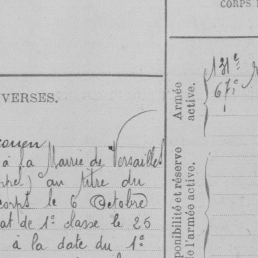 CORPS
VERSES.
à la Mairie de Versailles
au titre du
corps le 6 Octobre
at de 1e classe le 25
à la date du 1e
Armée
active.
131e
67e
ponibilité et réserve
de l'armée active.